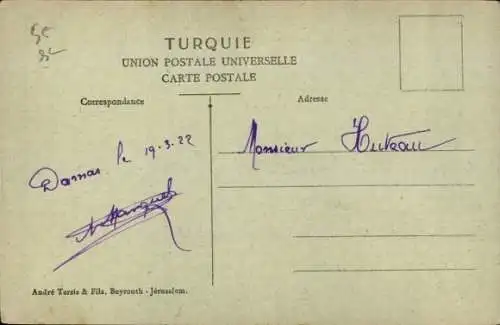 TURQUIE
UNION POSTALE UNIVERSELLE
CARTE POSTALE
Correspondance
Adresse
Damas le 19.3.22
Monsieur Huteau
André Terzis & Fils, Beyrouth - Jérusalem.